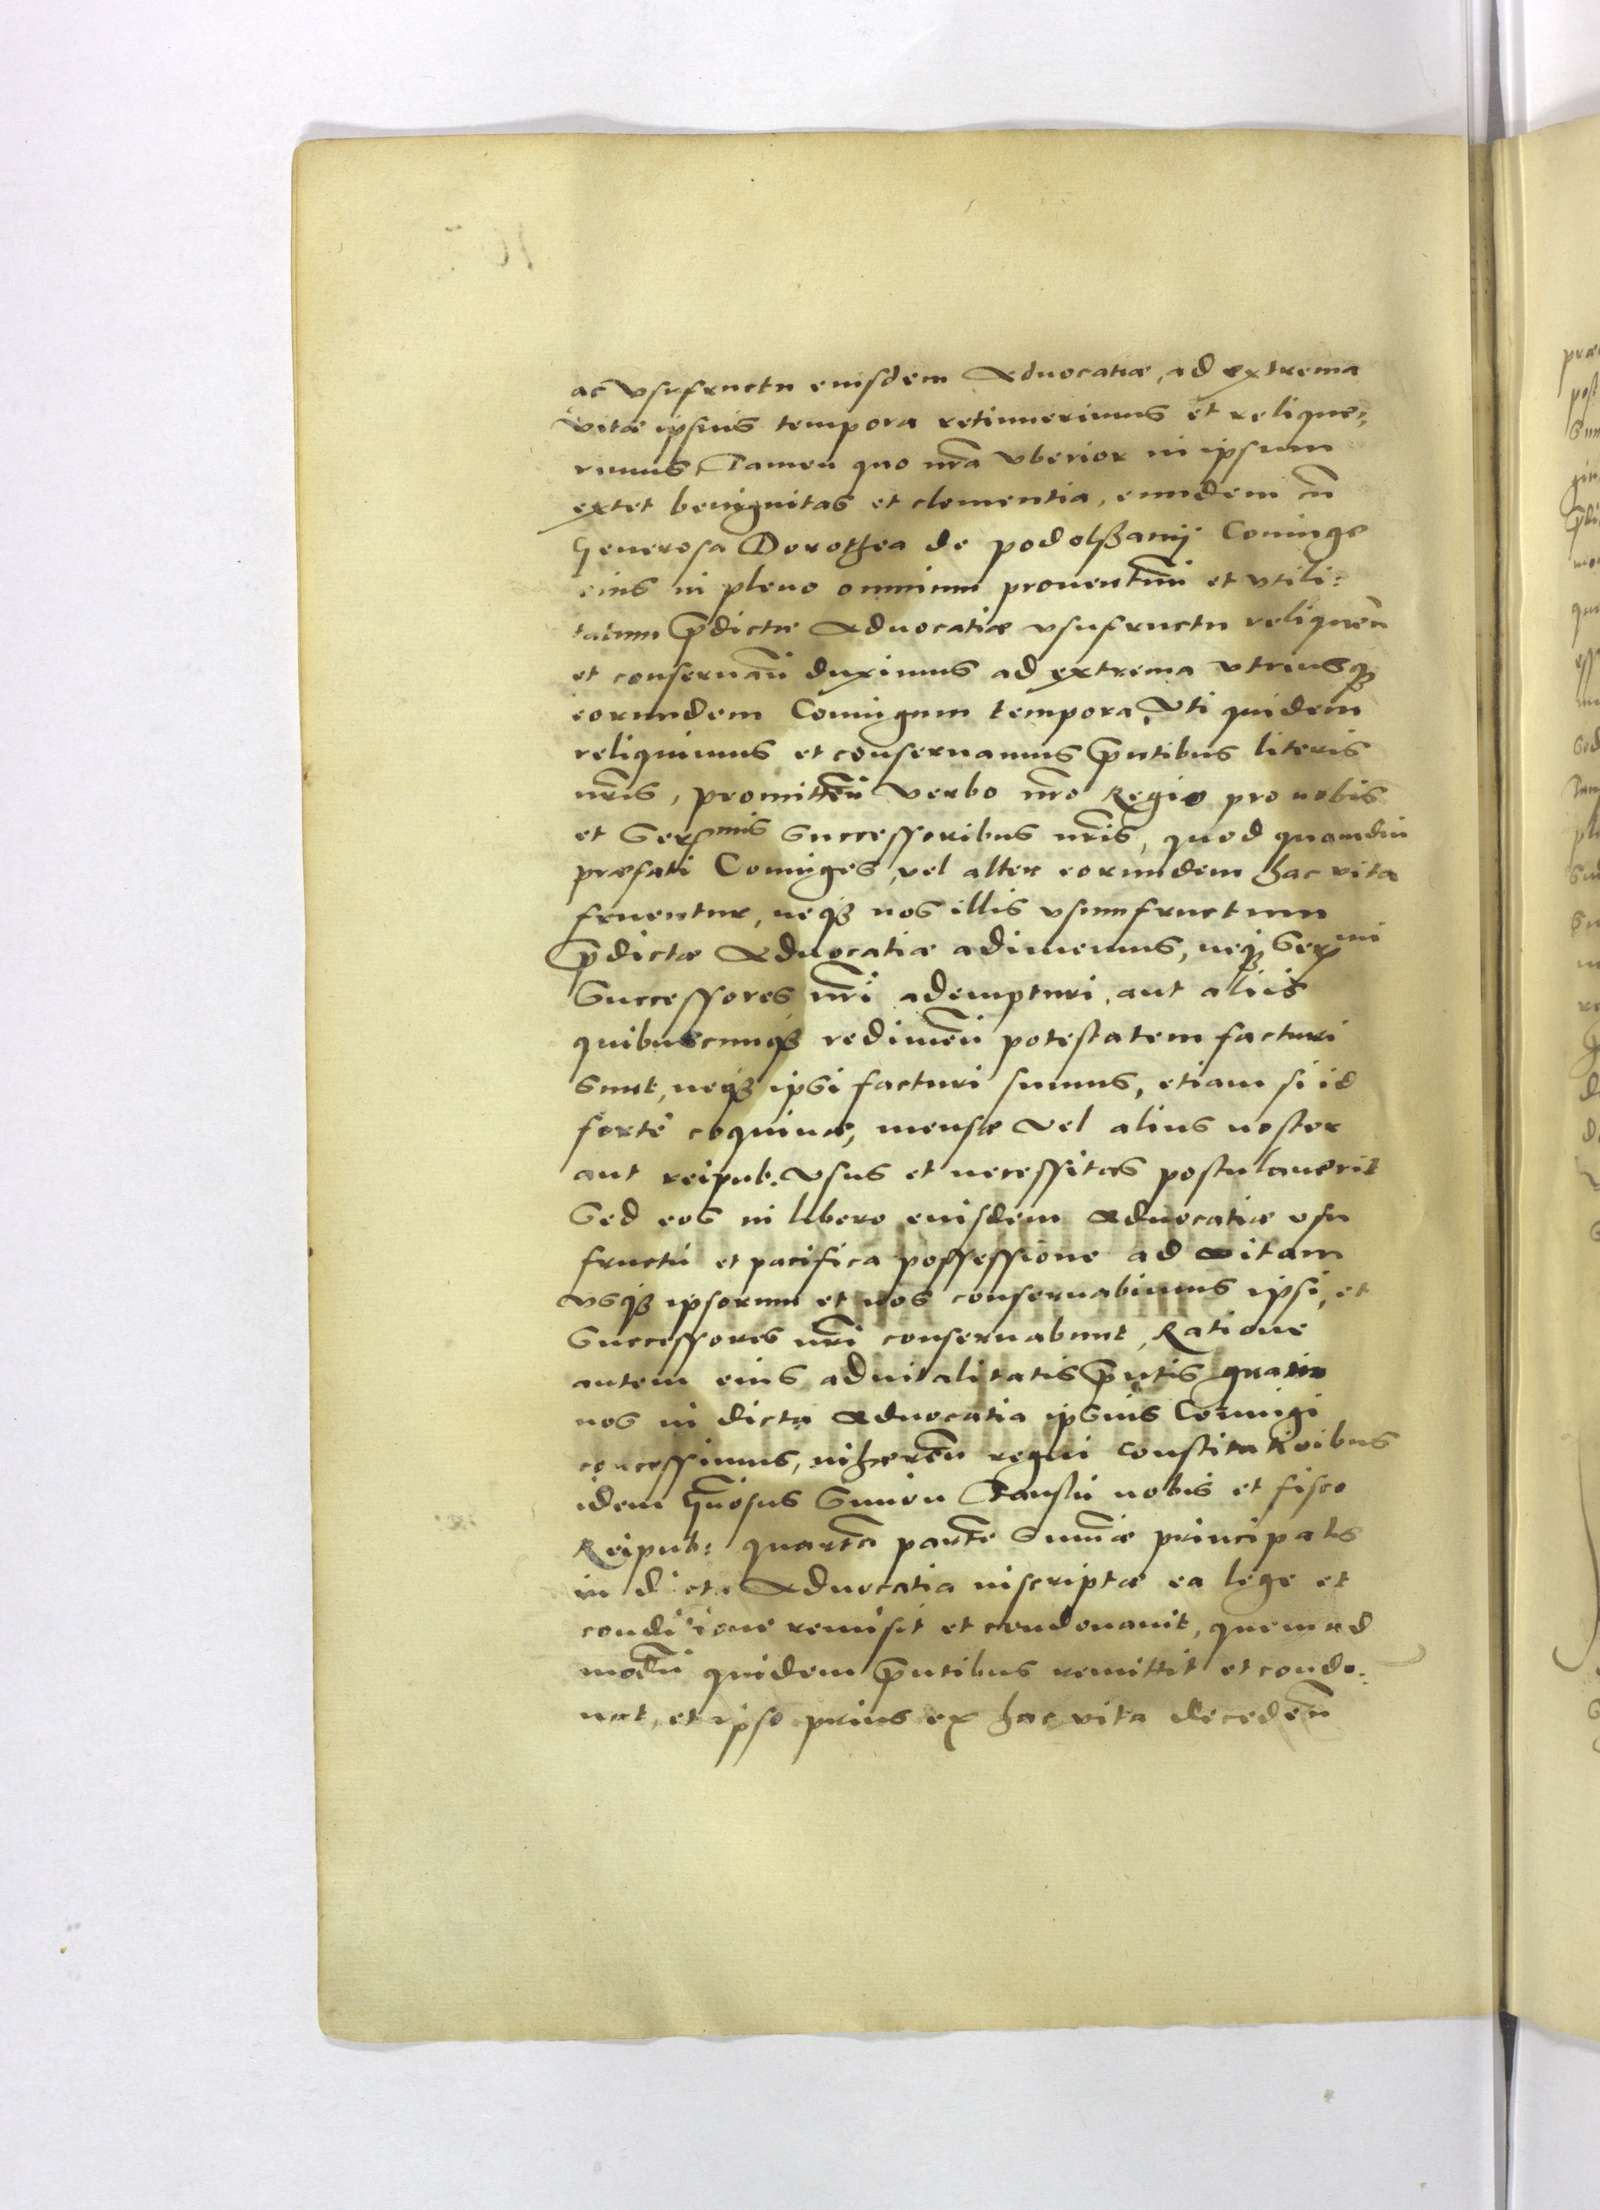 ac vsufructu eiusdem Aduocatiæ, ad extrema
vitæ ipsius tempora retinuerimus et relique:
rimus, Tamen quo nr̃a vberior in ipsum
extet benignitas et clementia, eundem cũ
Generosa Dorothea de podolßany Coniuge
eius in pleno omnium prouentuũ et vtili:
tatum p̃dictæ Aduocatiæ vsufructu reliquen̄
et conseruan̄ duximus ad extrema vtriusqȝ
eorundem Coniugum tempora, Vti quidem
reliquimus et conseruamus p̃ntibus literis
nr̃is, promitten̄ verbo nr̃o Regio pro nobis
et Sermis Successoribus nr̃is, quod quamdiu
præfati Coniuges, vel alter eorundem hac vita
fruentur, neqȝ nos illis vsumfructum
p̃dictæ Aduocatiæ adimemus, neqȝ Sermi
Successores nr̃i adempturi, aut aliis
quibuscunqȝ redimen̄ potestatem facturi
sunt, neqȝ ipsi facturi sumus, etiam si id
fortè coquinæ, mensæ vel alius noster
aut reipub. vsus et necessitas postulauerit
Sed eos in libero eiusdem Aduocatiæ vsu
fructu et pacifica possessione ad vitam
vsqȝ ipsorum et nos conseruabimus ipsi, et
Successores nr̃i conseruabunt, Ratione
autem eius aduitalitatis p̃ntis quam
nos in dicta Aduocatia ipsius Coniugi
concessimus, inhæren̄ regni constitutioībus
idem Gñosus Simon nobis et fisco
Reipub: quartã partẽ Sum̃æ principalis
in dicta Aduocatia inscriptæ ea lege et
conditione remisit et condonauit, quemad
modũ quidem p̃ntibus remittit et condo:
nat, et ipso prius ex hac vita deceden̄